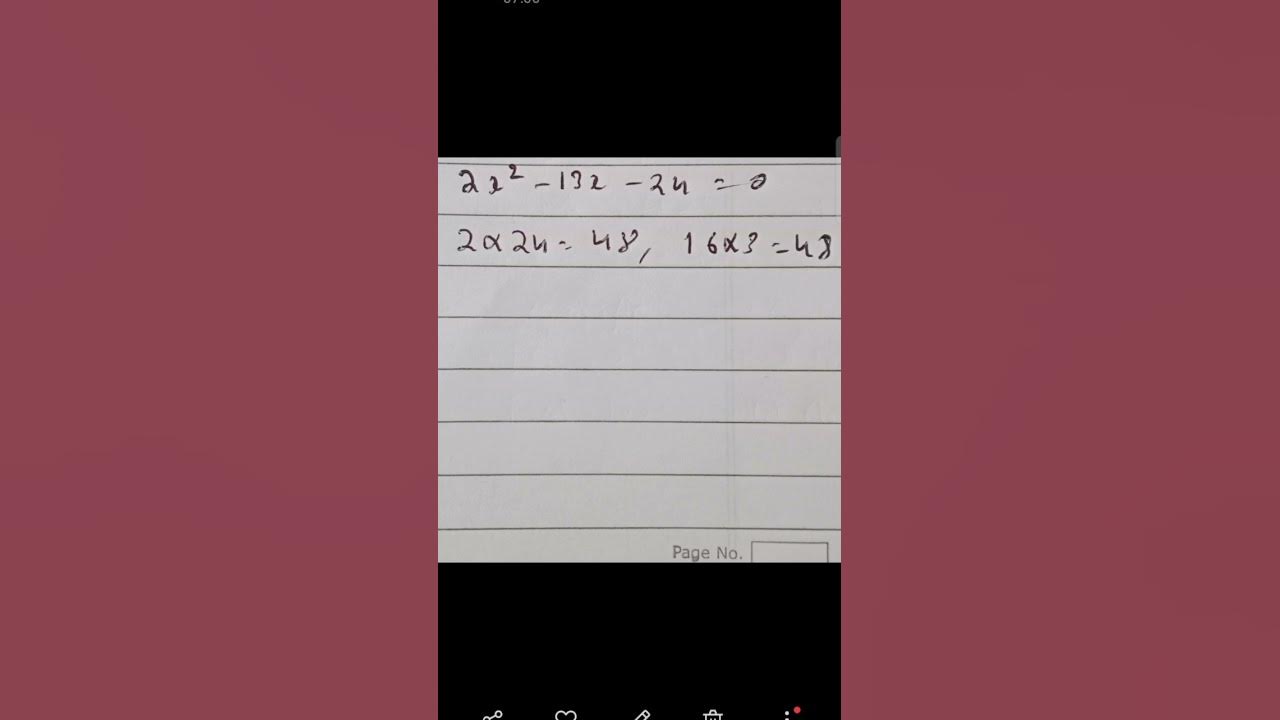 2x² - 13x - 24 = 0
2 x 24 = 48, 16 x 3 = 48
Page No.